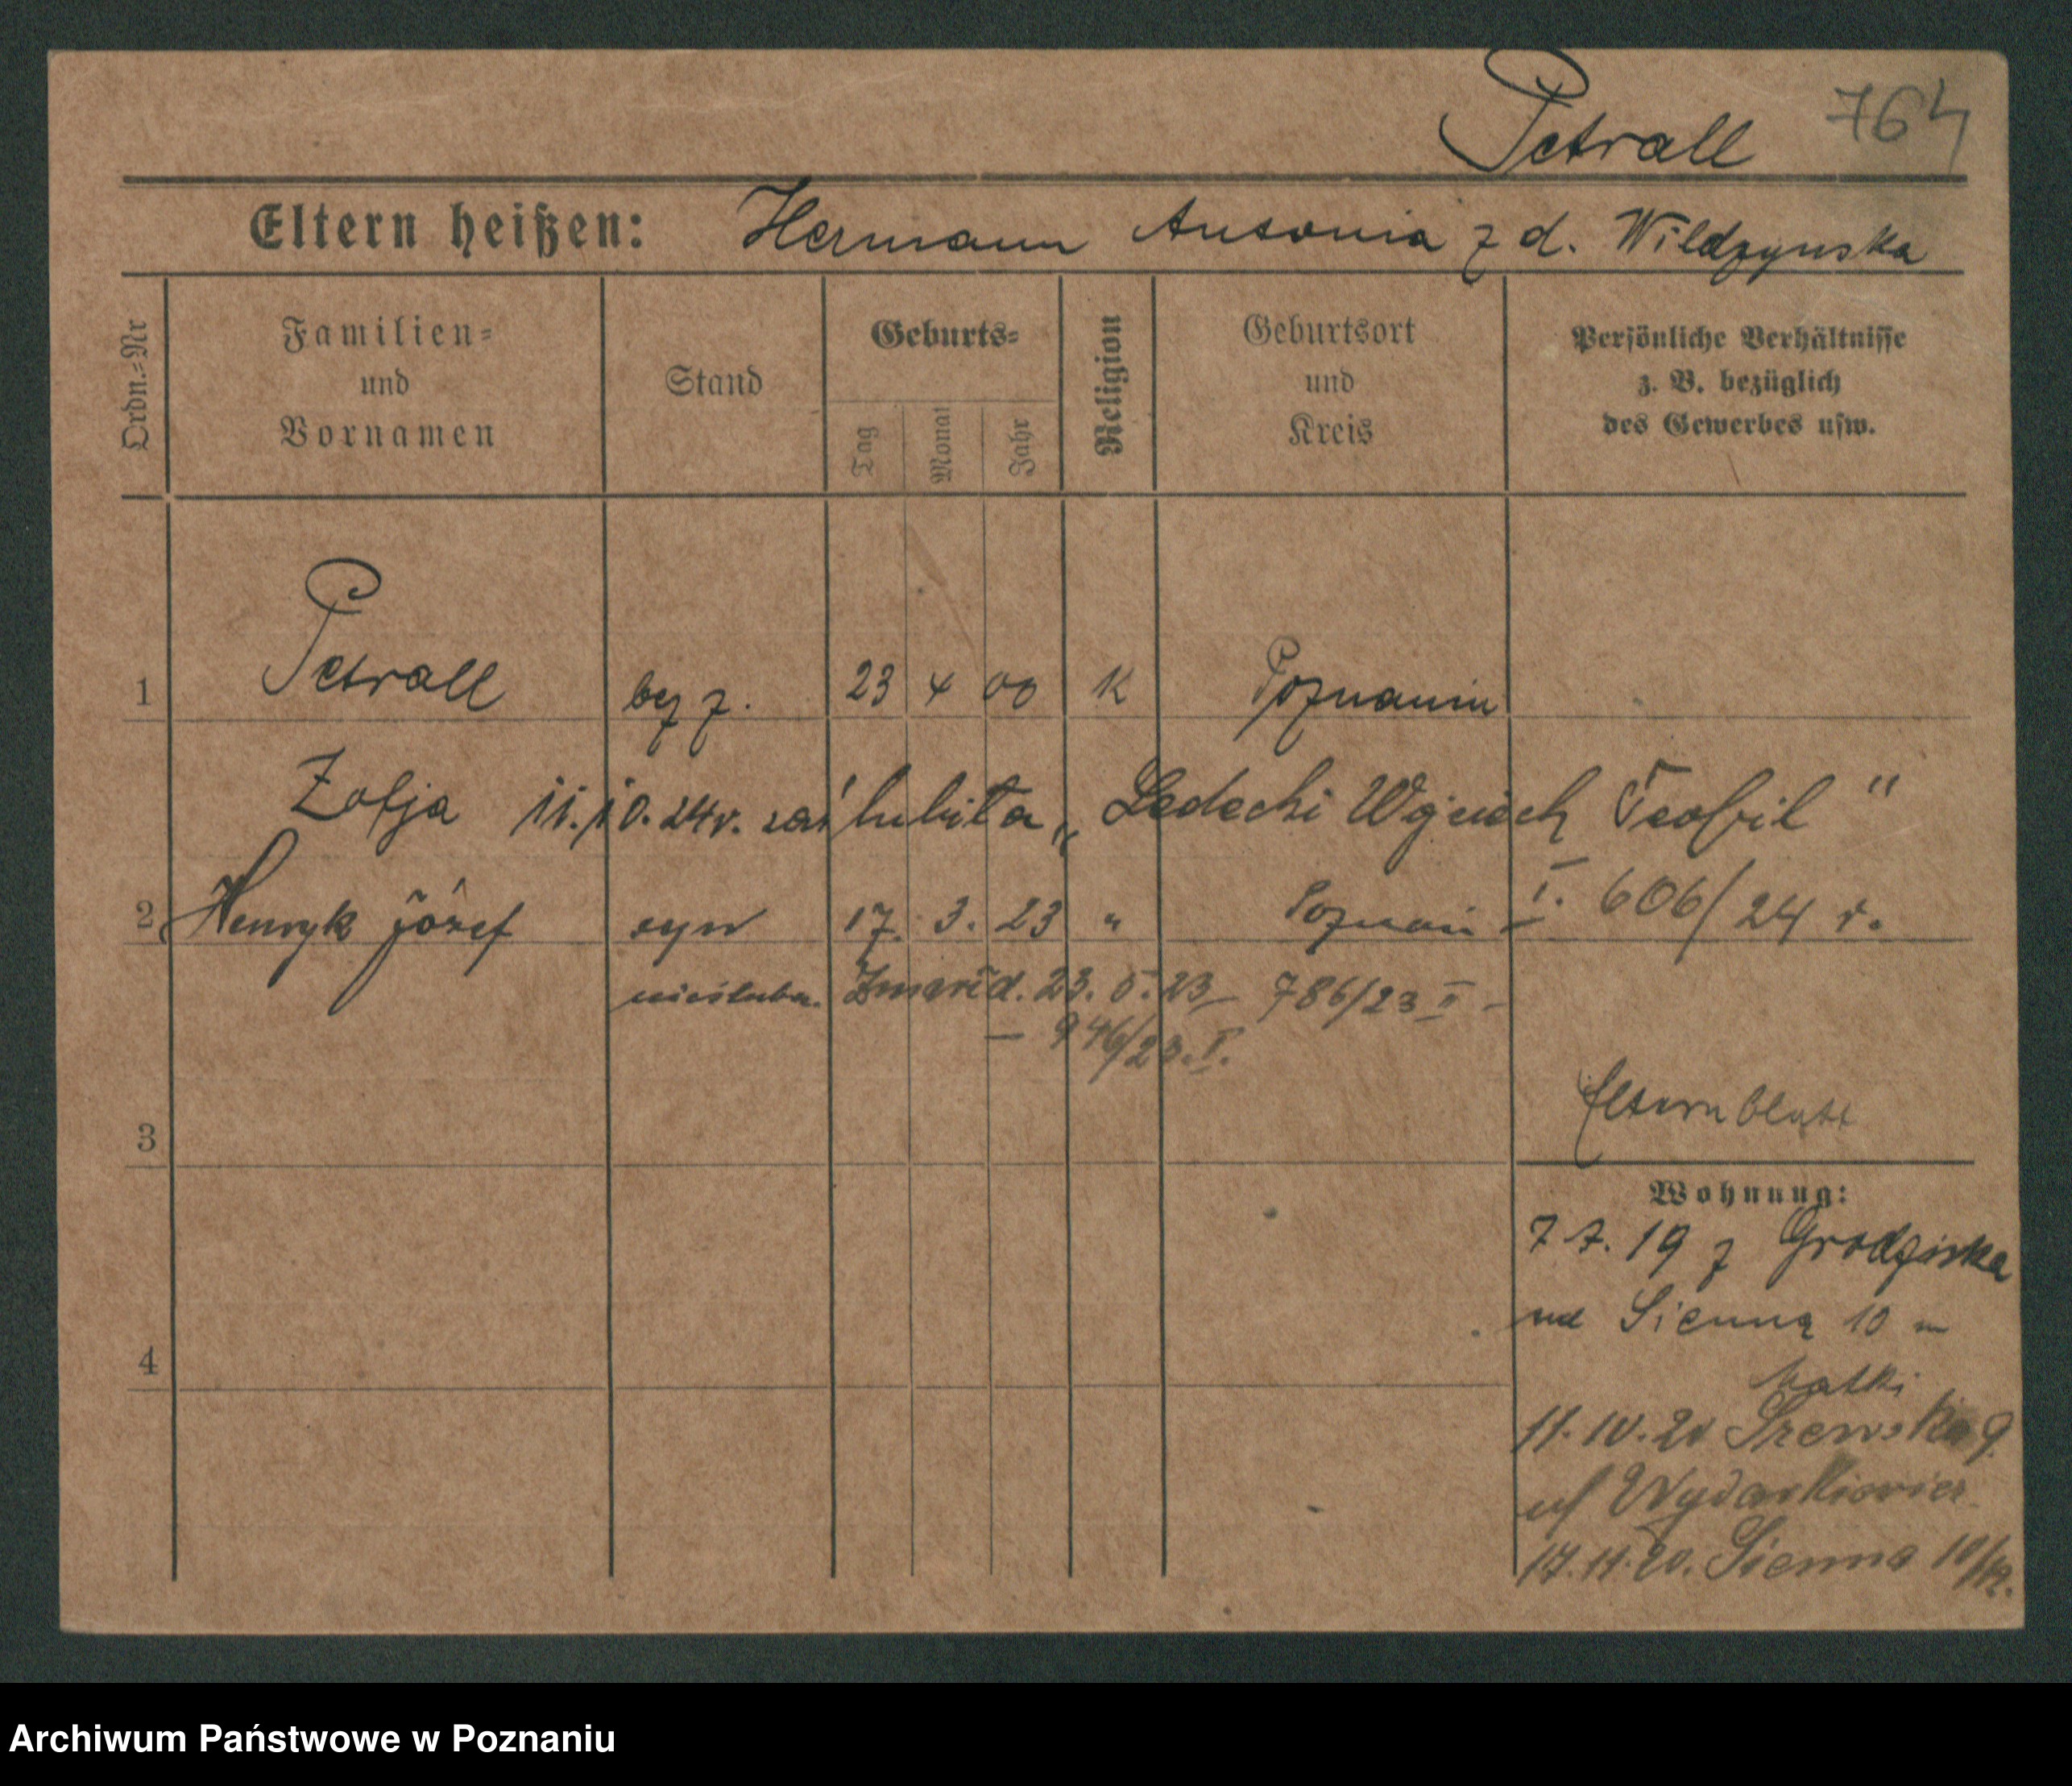 Petrall 764
Eltern heißen: Hermann Antonia z d. Wildzynska
Ordn.=Nr
Familien=
und
Vornamen
Stand
Geburts=
Tag
Monat
Jahr
Religion
Geburtsort
und
Kreis
Persönliche Verhältnisse
z. B. bezüglich
des Gewerbes usw.
1 Petrall bez z. 23 4 00 K Poznaniu
Zofja 11.10.24r. zaślubiła „Ledecki Wojciech Teofil"
I. 606/24 r.
2 Henryk Józef syn 17. 3. 23 " Poznań
nieślubn. Zmarł d. 23. 5. 23 – 786/23 II –
– 946/23. I.
3
Elternblatt
Wohnung:
7 7. 19 z Grodziska
na Sienną 10 u
matki
11.10.20 Szewska 9
4
17.11.20. Sienna 10/
Archiwum Państwowe w Poznaniu